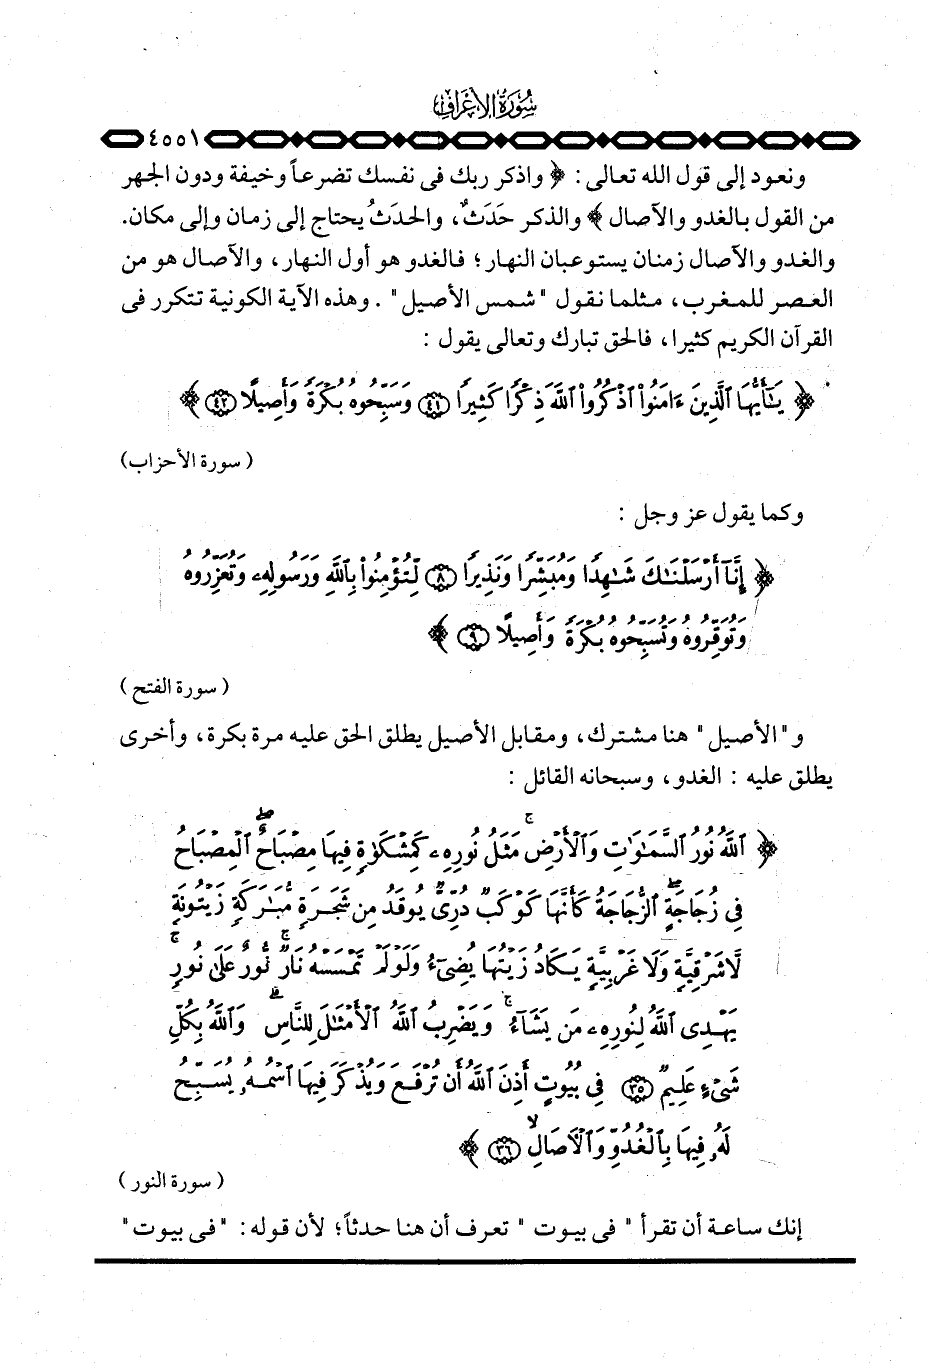 سورة الأعراف
٤٥٥١
ونعود إلى قول الله تعالى : ﴿ واذكر ربك فى نفسك تضرعاً وخيفة ودون الجهر
من القول بالغدو والآصال ﴾ والذكر حَدَثٌ، والحدَثُ يحتاج إلى زمان وإلى مكان.
والغدو والآصال زمنان يستوعبان النهار ؛ فالغدو هو أول النهار، والآصال هو من
العصر للمغرب، مثلما نقول "شمس الأصيل" . وهذه الآية الكونية تتكرر فى
القرآن الكريم كثيرا، فالحق تبارك وتعالى يقول :
﴿ يَـٰٓأَيُّهَا ٱلَّذِينَ ءَامَنُوا۟ ٱذْكُرُوا۟ ٱللَّهَ ذِكْرًا كَثِيرًا ٤١ وَسَبِّحُوهُ بُكْرَةً وَأَصِيلًا ٤٢ ﴾
( سورة الأحزاب )
وكما يقول عز وجل :
﴿ إِنَّآ أَرْسَلْنَـٰكَ شَـٰهِدًا وَمُبَشِّرًا وَنَذِيرًا ٨ لِّتُؤْمِنُوا۟ بِٱللَّهِ وَرَسُولِهِۦ وَتُعَزِّرُوهُ
وَتُوَقِّرُوهُ وَتُسَبِّحُوهُ بُكْرَةً وَأَصِيلًا ٩ ﴾
( سورة الفتح )
و "الأصيل" هنا مشترك، ومقابل الأصيل يطلق الحق عليه مرة بكرة، وأخرى
يطلق عليه : الغدو، وسبحانه القائل :
﴿ ٱللَّهُ نُورُ ٱلسَّمَـٰوَٰتِ وَٱلْأَرْضِ ۚ مَثَلُ نُورِهِۦ كَمِشْكَوٰةٍ فِيهَا مِصْبَاحٌ ۖ ٱلْمِصْبَاحُ
فِى زُجَاجَةٍ ۖ ٱلزُّجَاجَةُ كَأَنَّهَا كَوْكَبٌ دُرِّىٌّ يُوقَدُ مِن شَجَرَةٍ مُّبَـٰرَكَةٍ زَيْتُونَةٍ
لَّا شَرْقِيَّةٍ وَلَا غَرْبِيَّةٍ يَكَادُ زَيْتُهَا يُضِىٓءُ وَلَوْ لَمْ تَمْسَسْهُ نَارٌ ۚ نُّورٌ عَلَىٰ نُورٍ ۗ
يَهْدِى ٱللَّهُ لِنُورِهِۦ مَن يَشَآءُ ۚ وَيَضْرِبُ ٱللَّهُ ٱلْأَمْثَـٰلَ لِلنَّاسِ ۗ وَٱللَّهُ بِكُلِّ
شَىْءٍ عَلِيمٌ ٣٥ فِى بُيُوتٍ أَذِنَ ٱللَّهُ أَن تُرْفَعَ وَيُذْكَرَ فِيهَا ٱسْمُهُۥ يُسَبِّحُ
لَهُۥ فِيهَا بِٱلْغُدُوِّ وَٱلْـَٔاصَالِ ۙ ٣٦ ﴾
( سورة النور )
إنك ساعة أن تقرأ " فى بيوت " تعرف أن هنا حدثاً؛ لأن قوله : "فى بيوت"